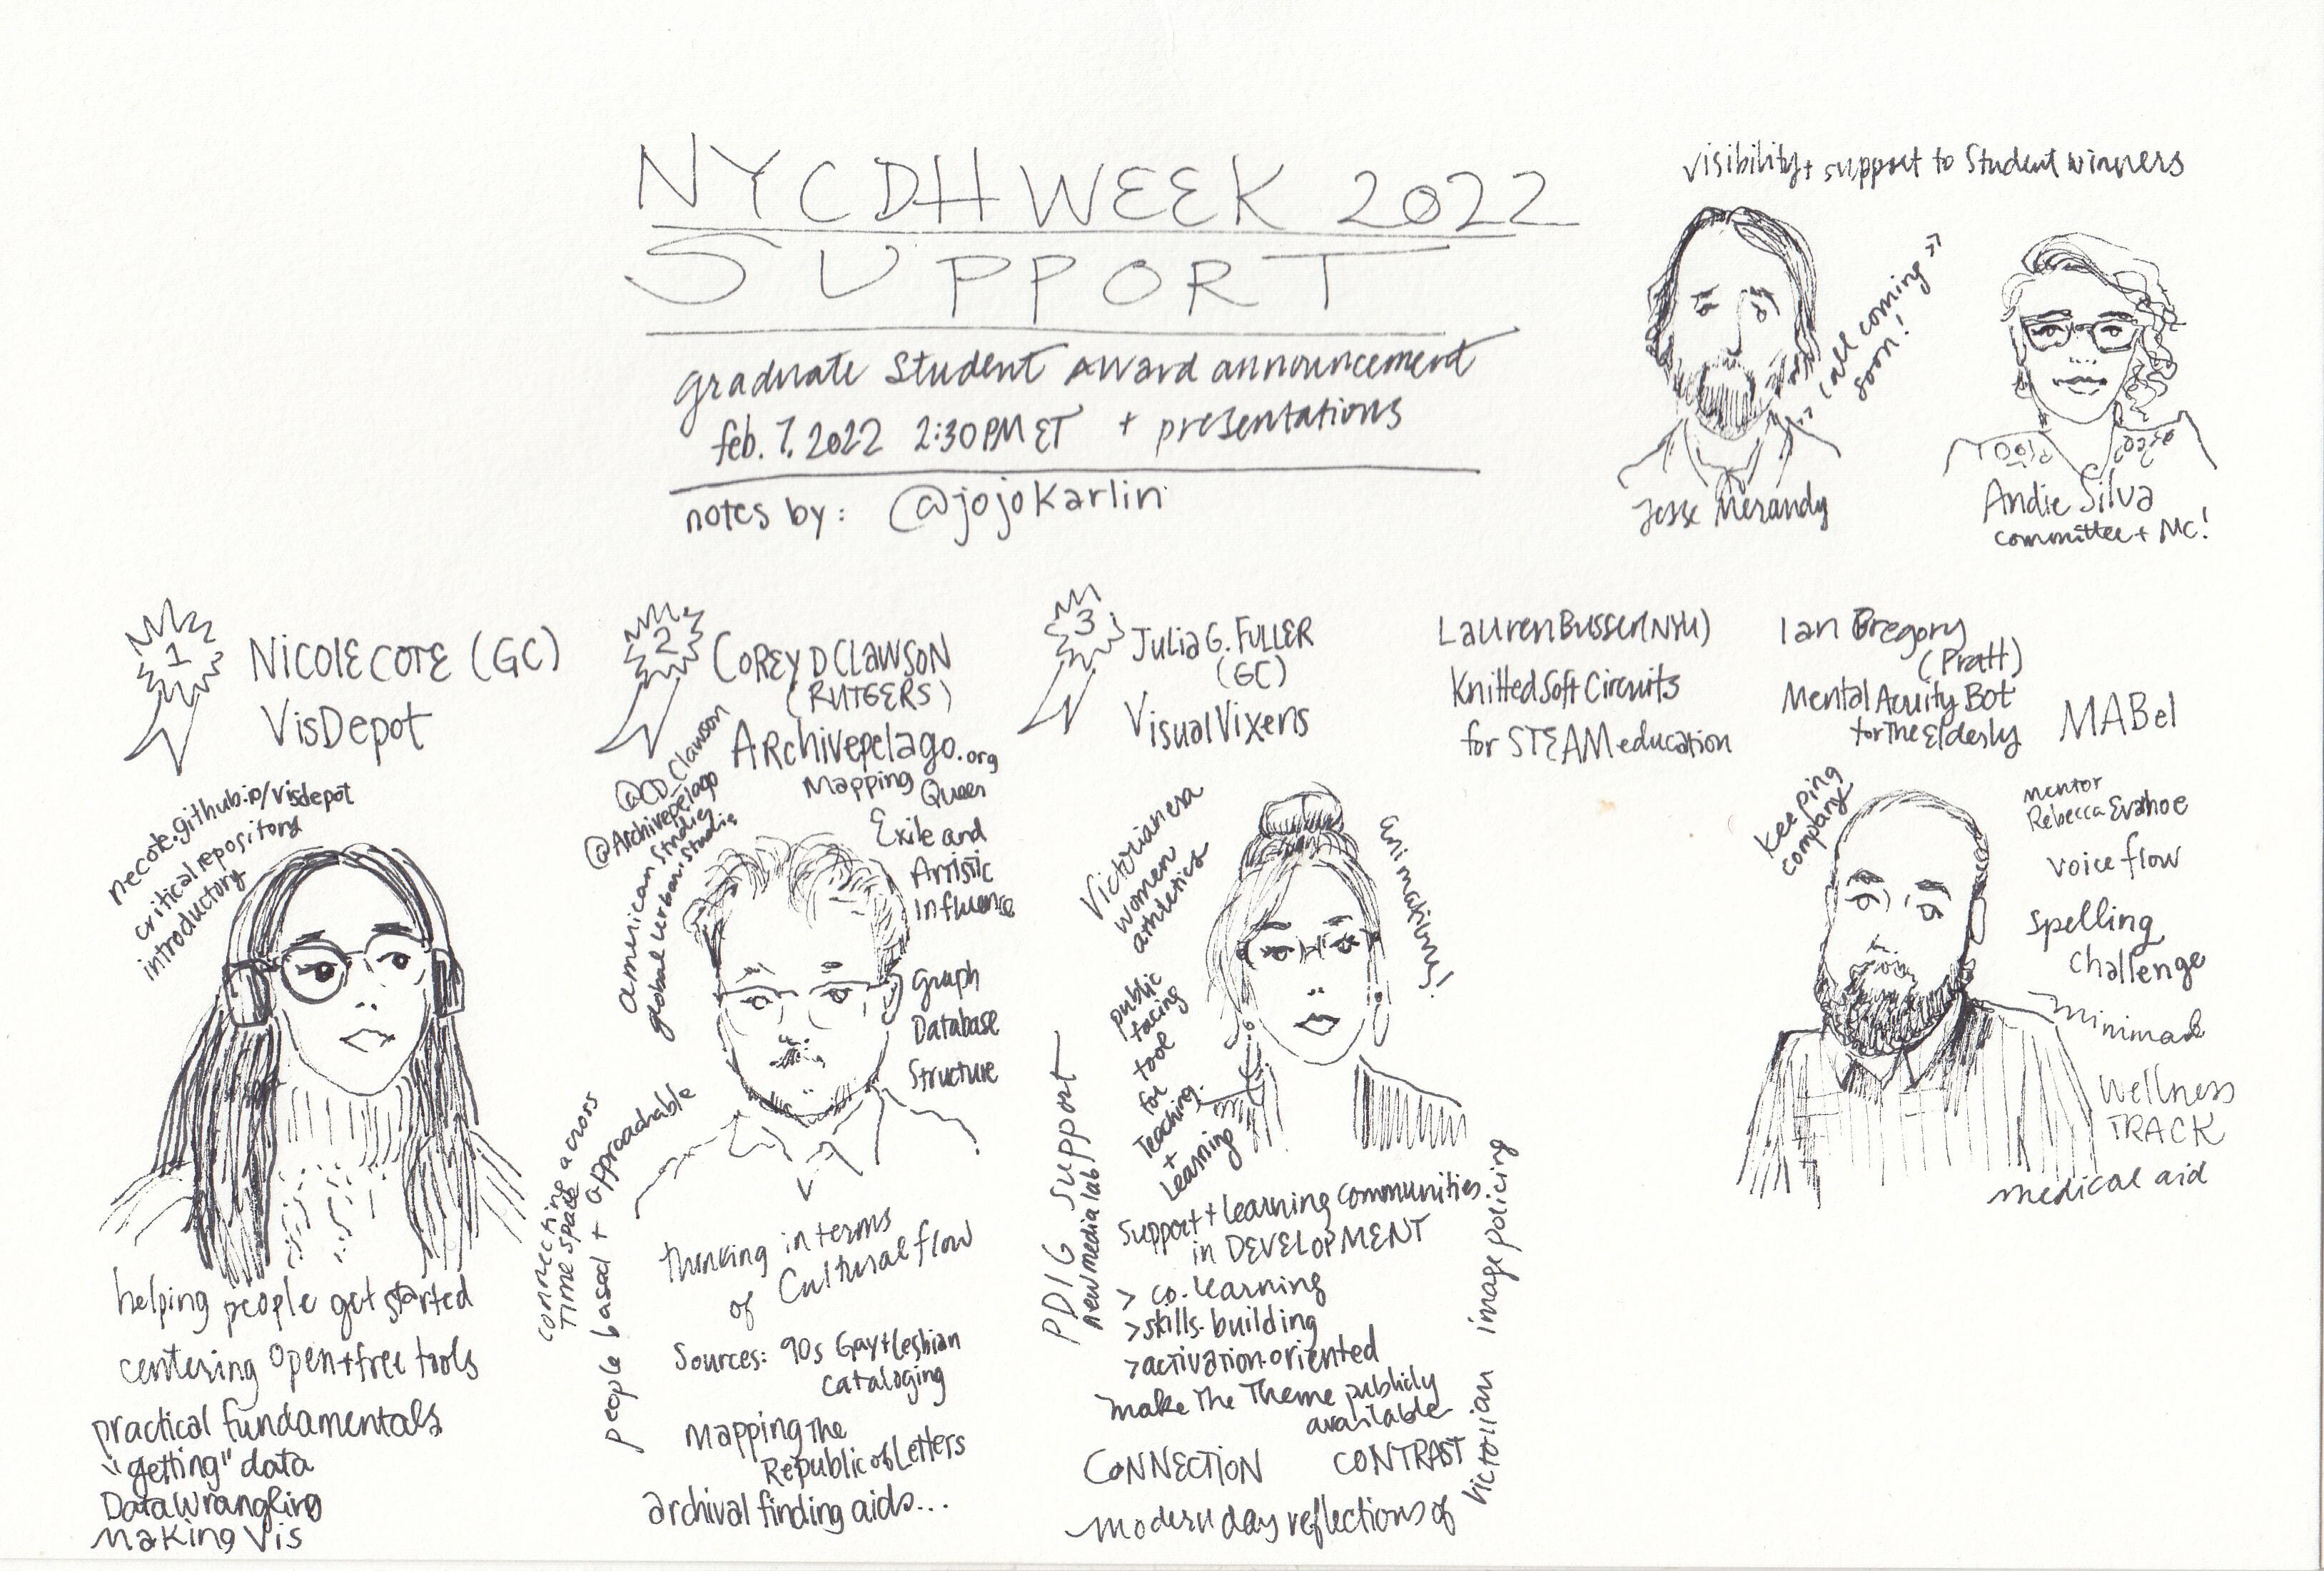 NYCDH WEEK 2022
SUPPORT
graduate student award announcement
feb. 7. 2022 2:30PM ET + presentations
notes by: @jojokarlin
visibility + support to student winners
call coming soon!
Jesse Merandy
Andie Silva
committee + MC!
1
Nicole Cote (GC)
VisDepot
necote.github.io/visdepot
critical repository
introductory
helping people get started
centering open + free tools
practical fundamentals
"getting" data
Data Wrangling
Making Vis
2
Corey D Clawson
(RUTGERS)
Archivepelago.org
Mapping Queer
Exile and
Artistic
Influence
@CD_Clawson
@Archivepelago
american studies
global urban studies
Graph
Database
Structure
connecting across
time space
people based + approachable
thinking in terms
of Cultural flow
Sources: 90s Gay + Lesbian
cataloging
Mapping The
Republic of Letters
archival finding aids...
3
Julia G. FULLER
(GC)
Visual Vixens
Victorian era
women
athletics
animations!
public
facing
tool
for
Teaching
+
Learning
PDIG support
new media lab
Support + learning communities
in DEVELOPMENT
> co-learning
> skills-building
> activation-oriented
make The Theme publicly
available
CONNECTION CONTRAST
modern day reflections of
Victorian image policing
Lauren Busser (NYU)
Knitted Soft Circuits
for STEAM education
Ian Gregory
(Pratt)
Mental Acuity Bot
for The Elderly
MABel
keeping
company
mentor
Rebecca Evanhoe
voice flow
spelling
challenge
Wellness
TRACK
medical aid